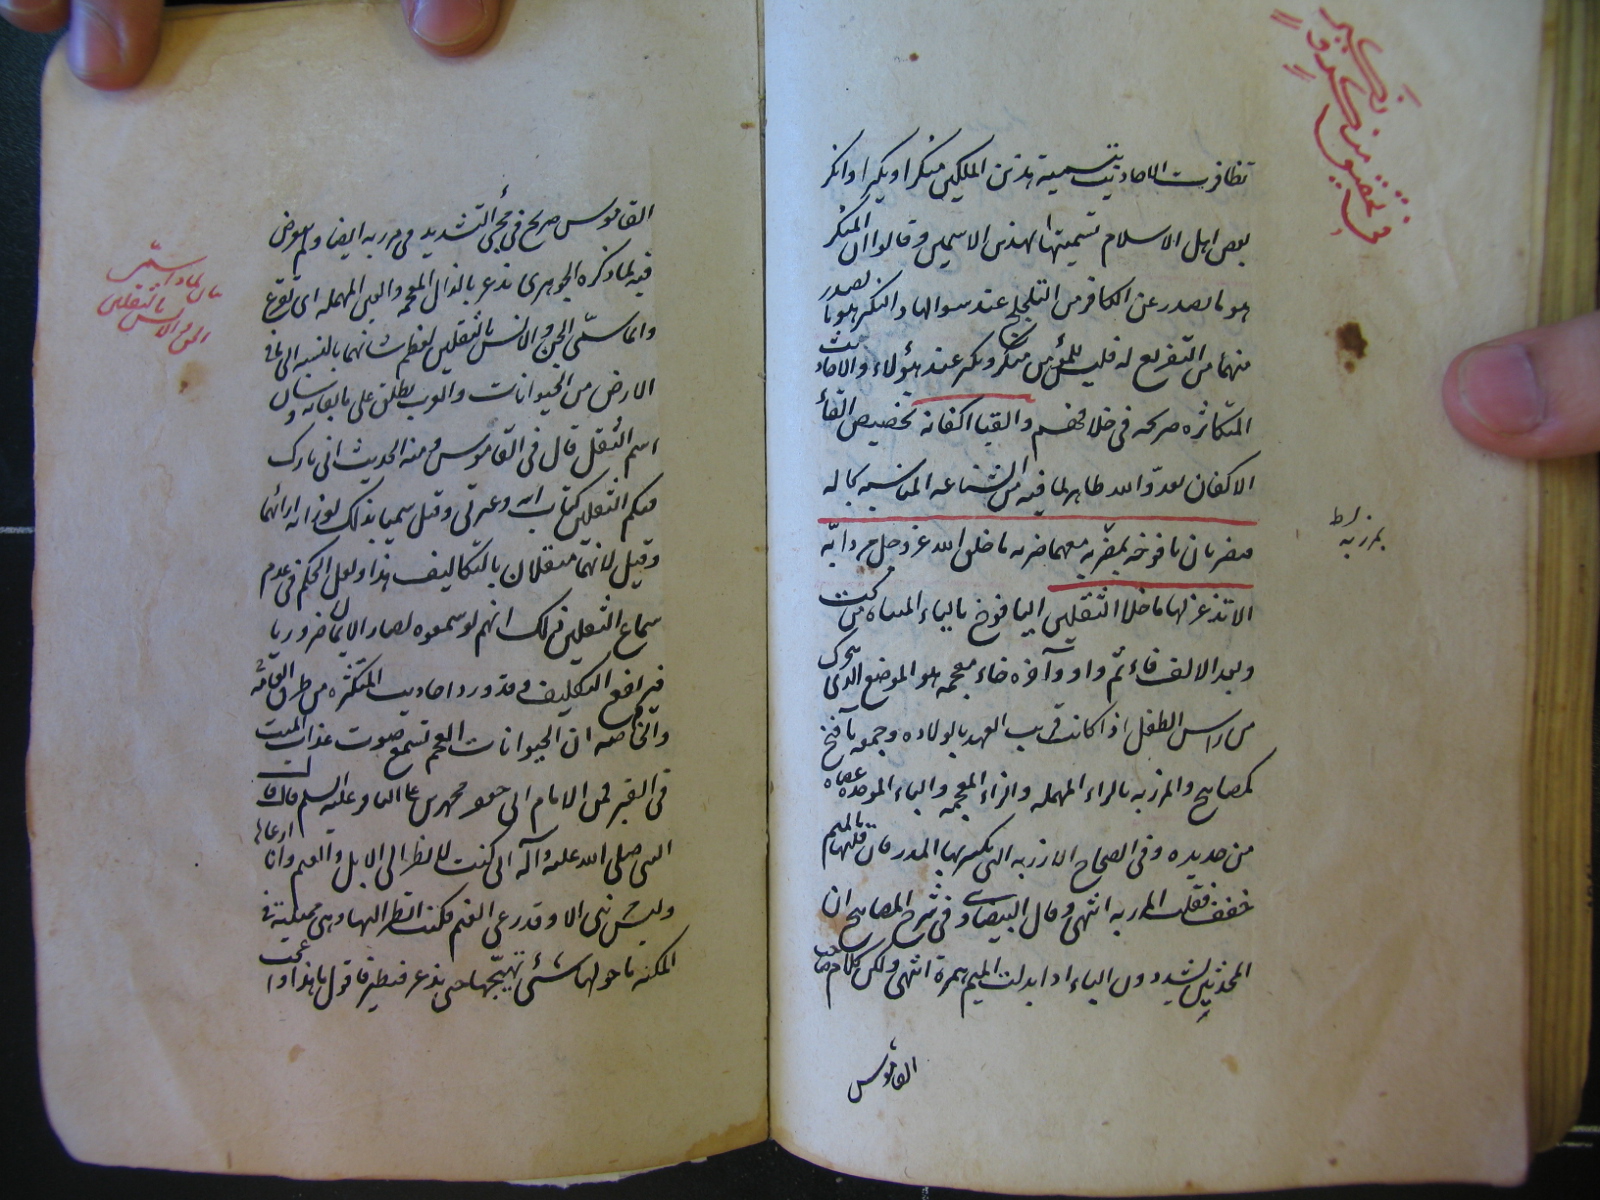 في تحقيق منكر و
نكير
تظافرت الاحاديث بتسمية هذين الملكين منكرا ونكيرا وانكر
بعض اهل الاسلام تسميتهما بهذين الاسمين وقالوا ان المنكر
هو ما يصدر عن الكافر من التلجلج عند سوالهما والنكير هو ما يصدر
منهما من التقريع له فليس للمؤمن منكر ونكير عند هؤلاء والاحاديث
المتكاثرة صريحه في خلافهم والقيا اكفانه تخصيص القاء
الاكفان بعدو الله ظاهر لما فيه من الشناعه المناسبه بحاله
فيضربان يافوخه بمرزبه معهما ضربه ما خلق الله عز وجل من دابّه
بمرزبه ط
الا تذعر لها ما خلا الثقلين اليافوخ بالياء المثناه من تحت
وبعد الالف فاء ثمّ واو وآخره خاء معجمه هو الموضع الذي يتحرك
من راس الطفل اذا كانت قريب العهد بالولاده وجمعه يآفيخ
كمصابيح والمرزبه بالراء المهمله والزاء المعجمه والباء الموحده عصاه
من حديده وفي الصحاح الارزبه التي يكسر بها المدر فان قلتها بالميم
خففت فقلت المرزبه انتهى وقال البيضاوي في شرح المصابيح ان
المحدثين يشددون الباء اذا ابدلت الميم همزة انتهى ولكن كلام صاحب
القاموس
القاموس صريح في مجئ التشديد في مرزبه ايضا ولم يتعرض
فيه لما ذكره الجوهري تذعر بالذال المعجمه والعين المهمله اي تفزع
وانما سمّى الجن والانس بالثقلين لعظم شانهما بالنسبه الى ما في
بيان لما
الجن والانس بالثقلين
الارض من الحيوانات والعرب يطلق على ما له نفاسة وشان
اسم الثقل قال في القاموس ومنه الحديث اني تارك
فيكم الثقلين كتاب الله وعترتي وقيل سميا بذلك لرزانه ارائهما
وقيل لانهما مثقلان بالتكاليف هذا ولعل الحكم في عدم
سماع الثقلين ذلك انهم لو سمعوه لصار الايمان ضروريا
فيرتفع التكليف وقد ورد احاديث المتكثره من طرق العامّه
والخاصه ان الحيوانات العجم تسمع صوت عذاب الميت
في القبر فمن الامام ابي جعفر محمد بن علي الباقر عليه السلم قال قال
النبي صلى الله عليه وآله اني كنت لانظر الى الابل والغنم وانا ارعاها
وليس نبي الا وقد رعى الغنم فكنت انظر اليها وهي متمكنة في
المكنه ما حولها شئ يهيّجها حتى تذعر فتطير فاقول ما هذا واعجب